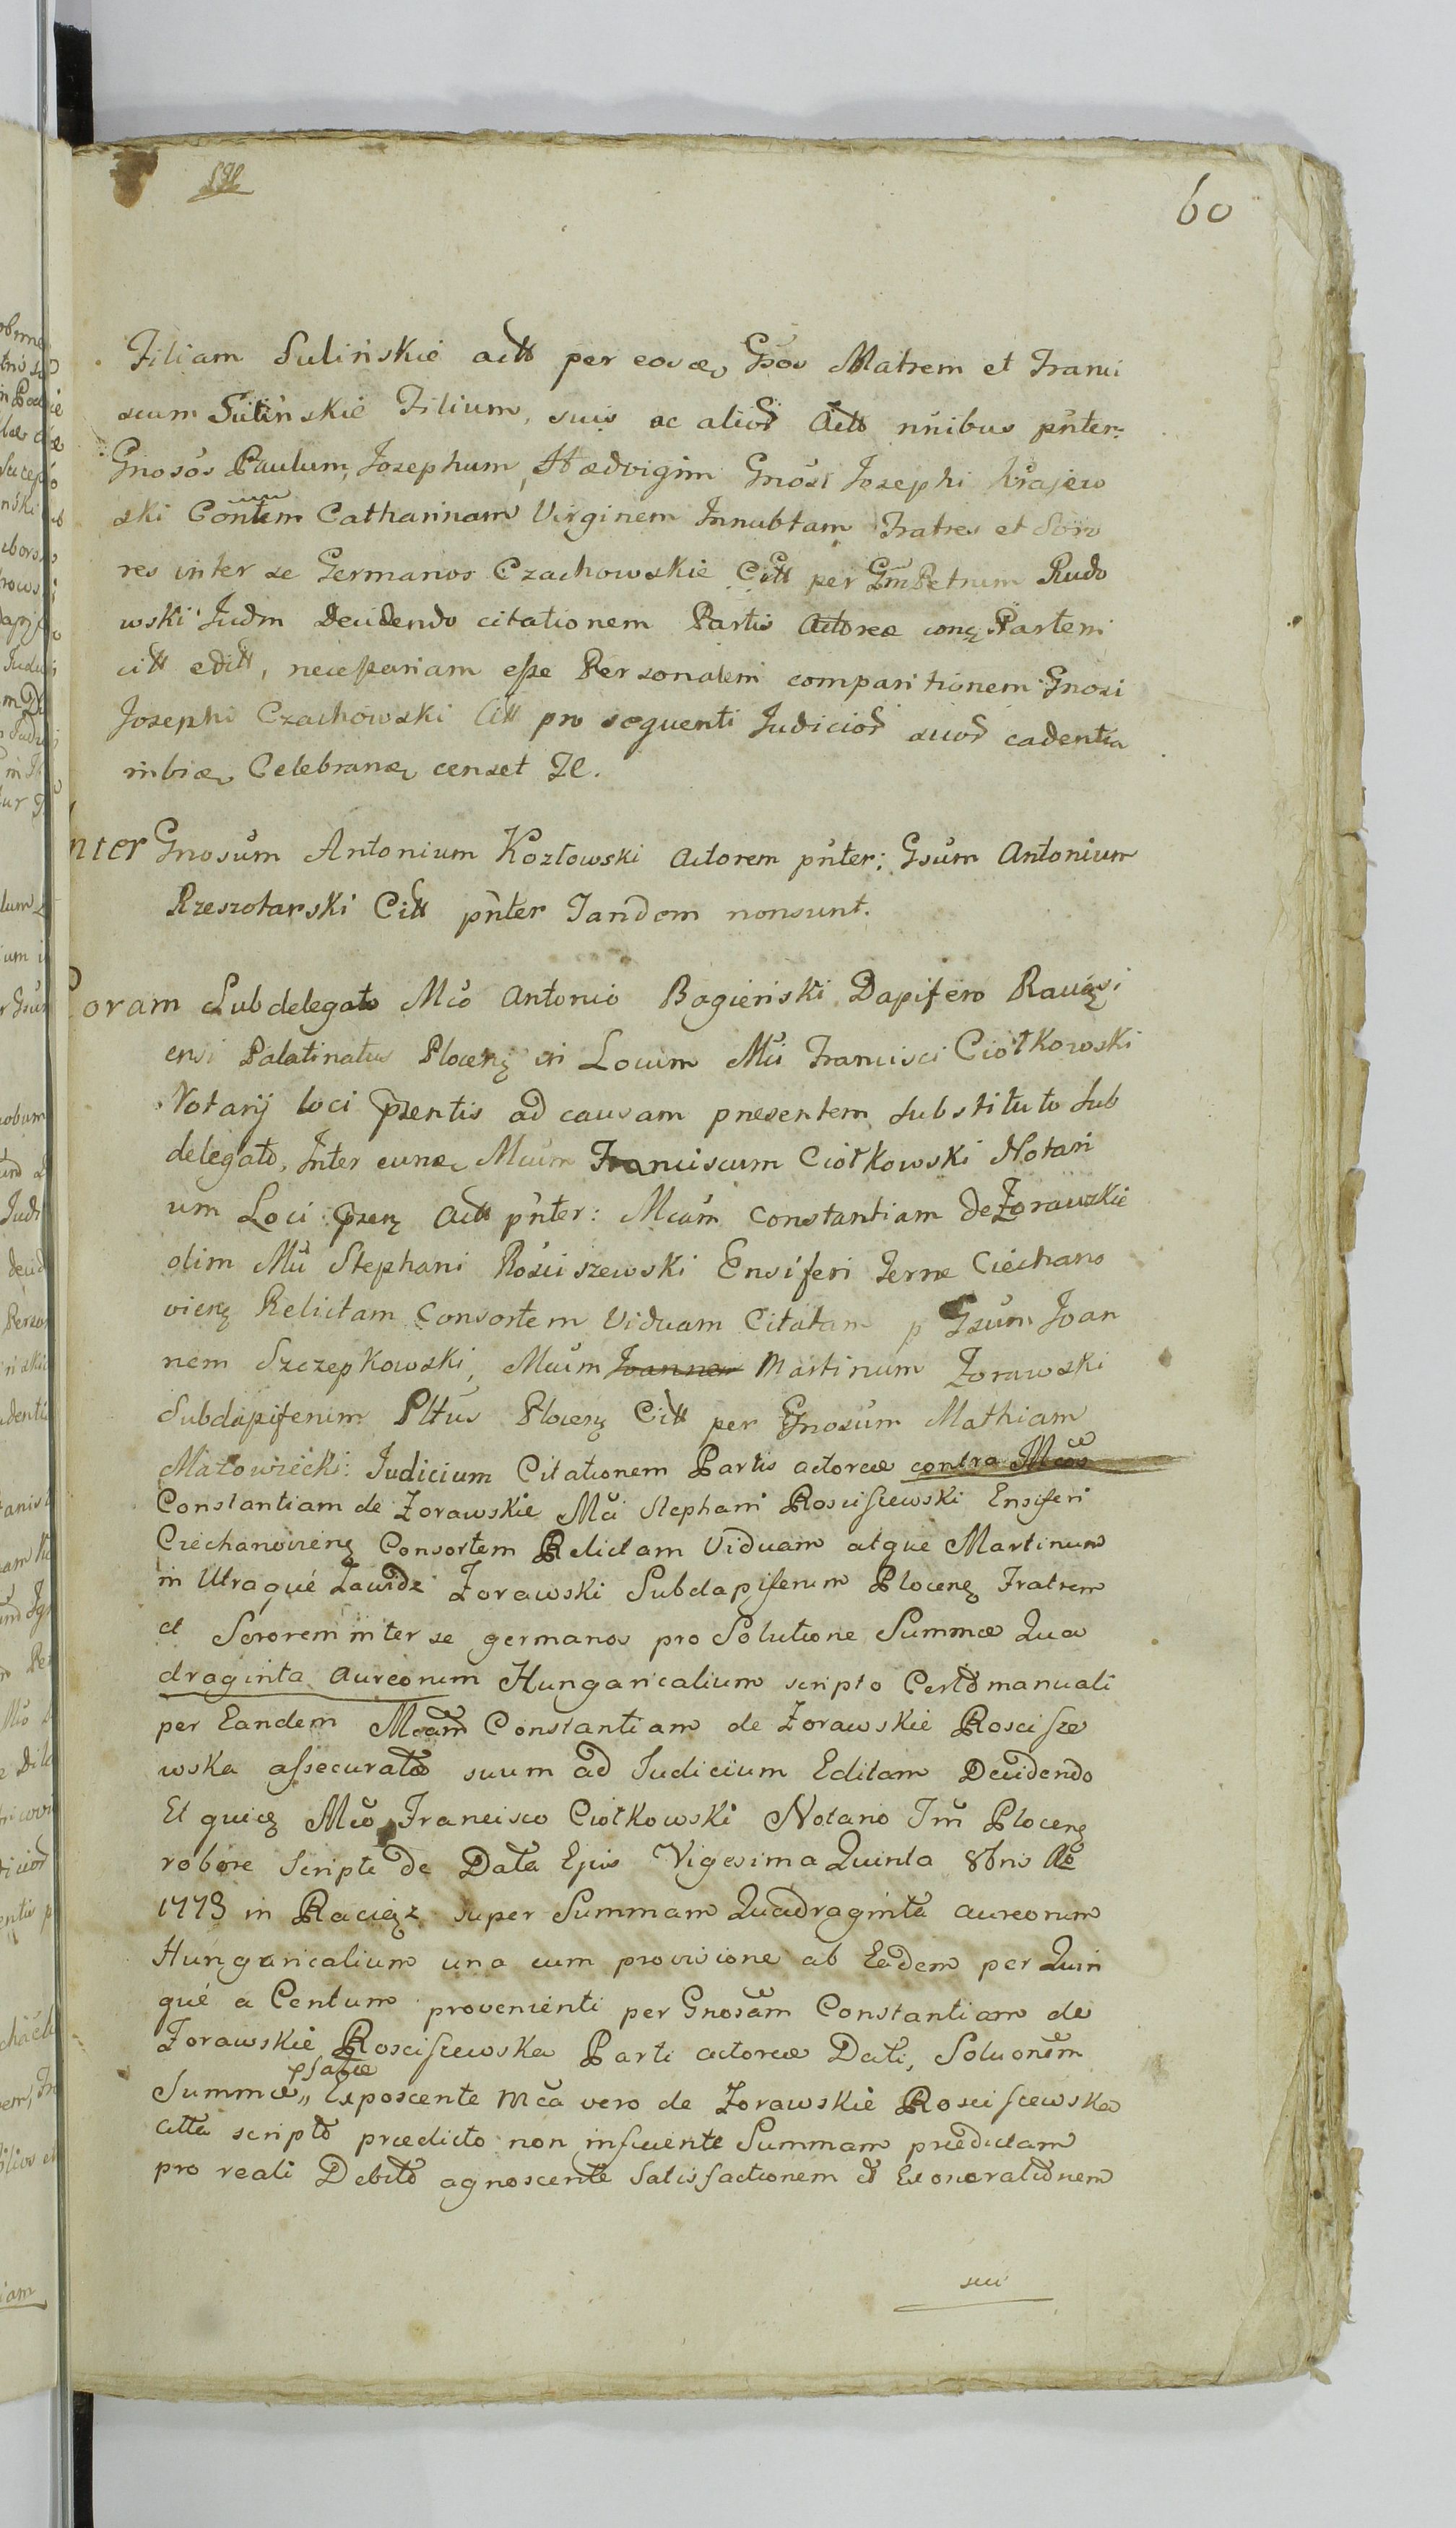 60
Filiam Sulińskie actt per eosdę Gsos Matrem et Franci
scum Sulińskie Filium, suis ac aliod Actt nnibus pnter:
Gnosos Paulum, Josephum, Haedvigim Gnosi Josephi Krajew
ski Contem Catharinam Virginem Innubtam Fratres et Soro
res inter se Germanos Czachowskie Citt per Gm Petrum Rudo
wski Judm Decidendo citationem Partis Actoreae conę Partem
citt editt, necessariam esse Personalem comparitionem Gnosi
Josephi Czachowski Citt pro sequenti Judiciod suod cadentia
inbiae Celebranae censet
nter Gnosum Antonium Kozłowski Actorem pnter: Gsum Antonium
Rzeszotarski Citt pnter Tandem nonsunt.
Coram Subdelegato Mco Antonio Bogieński Dapifero Raciązi
ensi Palatinatus Plocenę in Locum Mci Francisci Ciołkowski
Notarij loci pzentis ad causam presentem substituto Sub
delegato, Inter eundę Mcum Franciscum Ciołkowski Notari
um Loci pzenę Actt pnter: Mcam Constantiam de Żorawskie
olim Mci Stephani Rościszewski Ensiferi Terrae Ciechano
vienę Relictam Consortem Viduam Citatam p Gsum Joan
nem Szczepkowski, Mcum Joannem Martinum Żorawski
Subdapiferum Pltus Plocenę Citt per Gnosum Mathiam
Mazowiecki: Judicium Citationem Partis actoreae contra Mcos
Constantiam de Żorawskie Mci Stephani Rosciszewski Ensiferi
Ciechanovienę Consortem Relictam Viduam atque Martinum
in Utraque Zawidz Żorawski Subdapiferum Plocenę Fratrem
et Sororem inter se germanos pro Solutione Summae Qua
draginta aureorum Hungaricalium scripto Certo manuali
per Eandem Mcam Constantiam de Żorawskie Roscisze
wska assecurato suum ad Judicium Editam Decidendo
Et quia Mco Francisco Ciołkowski Notario Ploceng
robore Scripti de Data Ejus Vigesima Quinta 8bris Ao
1773 in Raciąz super Summam Quadraginta aureorum
Hungaricalium una cum provisione ab Eadem per Quin
que a Centum provenienti per Gnosam Constantiam de
Żorawskie Rosciszewska Parti actoreae Dati, Soluonem
psatae
Summae,, Exposcente Mca vero de Żorawskie Rosciszewska
citta scripto praedicto non inficiente Summam praedictam
pro reali Debito agnoscente Satisfactionem et Exonorationem
sui